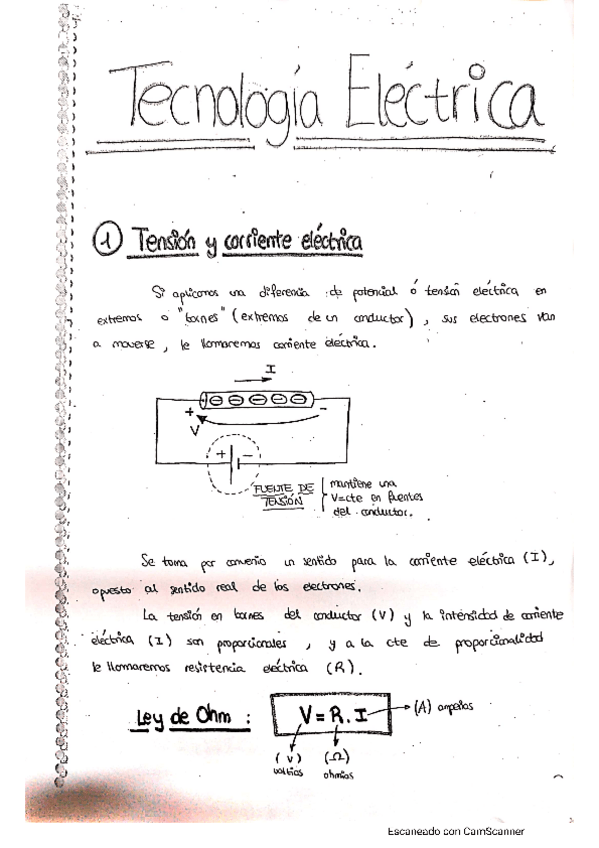 Tecnología Eléctrica
1 Tensión y corriente eléctrica
Si aplicamos una diferencia de potencial ó tensión eléctrica en
extremos o "bornes" (extremos de un conductor), sus electrones van
a moverse, le llamaremos corriente eléctrica.
I
+ -
V
+ -
FUENTE DE TENSIÓN
mantiene una
V=cte en fuentes
del conductor.
Se toma por convenio un sentido para la corriente eléctrica (I),
opuesto al sentido real de los electrones.
La tensión en bornes del conductor (V) y la intensidad de corriente
eléctrica (I) son proporcionales, y a la cte de proporcionalidad
le llamaremos resistencia eléctrica (R).
Ley de Ohm : V = R . I (A) amperios
(V) (Ω)
voltios ohmios
Escaneado con CamScanner